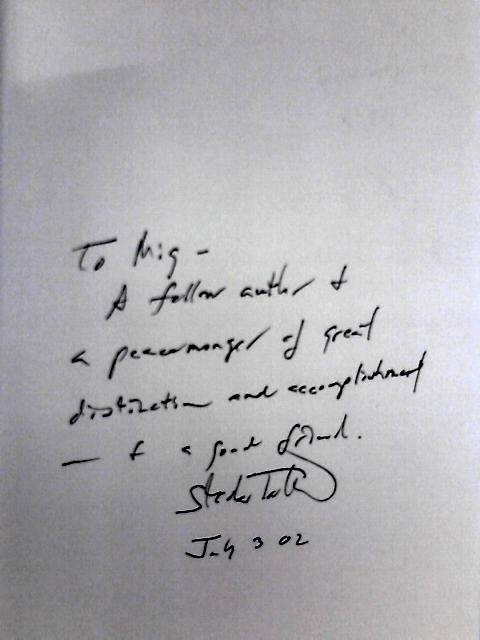 To Mig -
A fellow author &
a peacemonger of great
distinction and accomplishment
— & a good friend.
Strobe Talbott
July 3 02